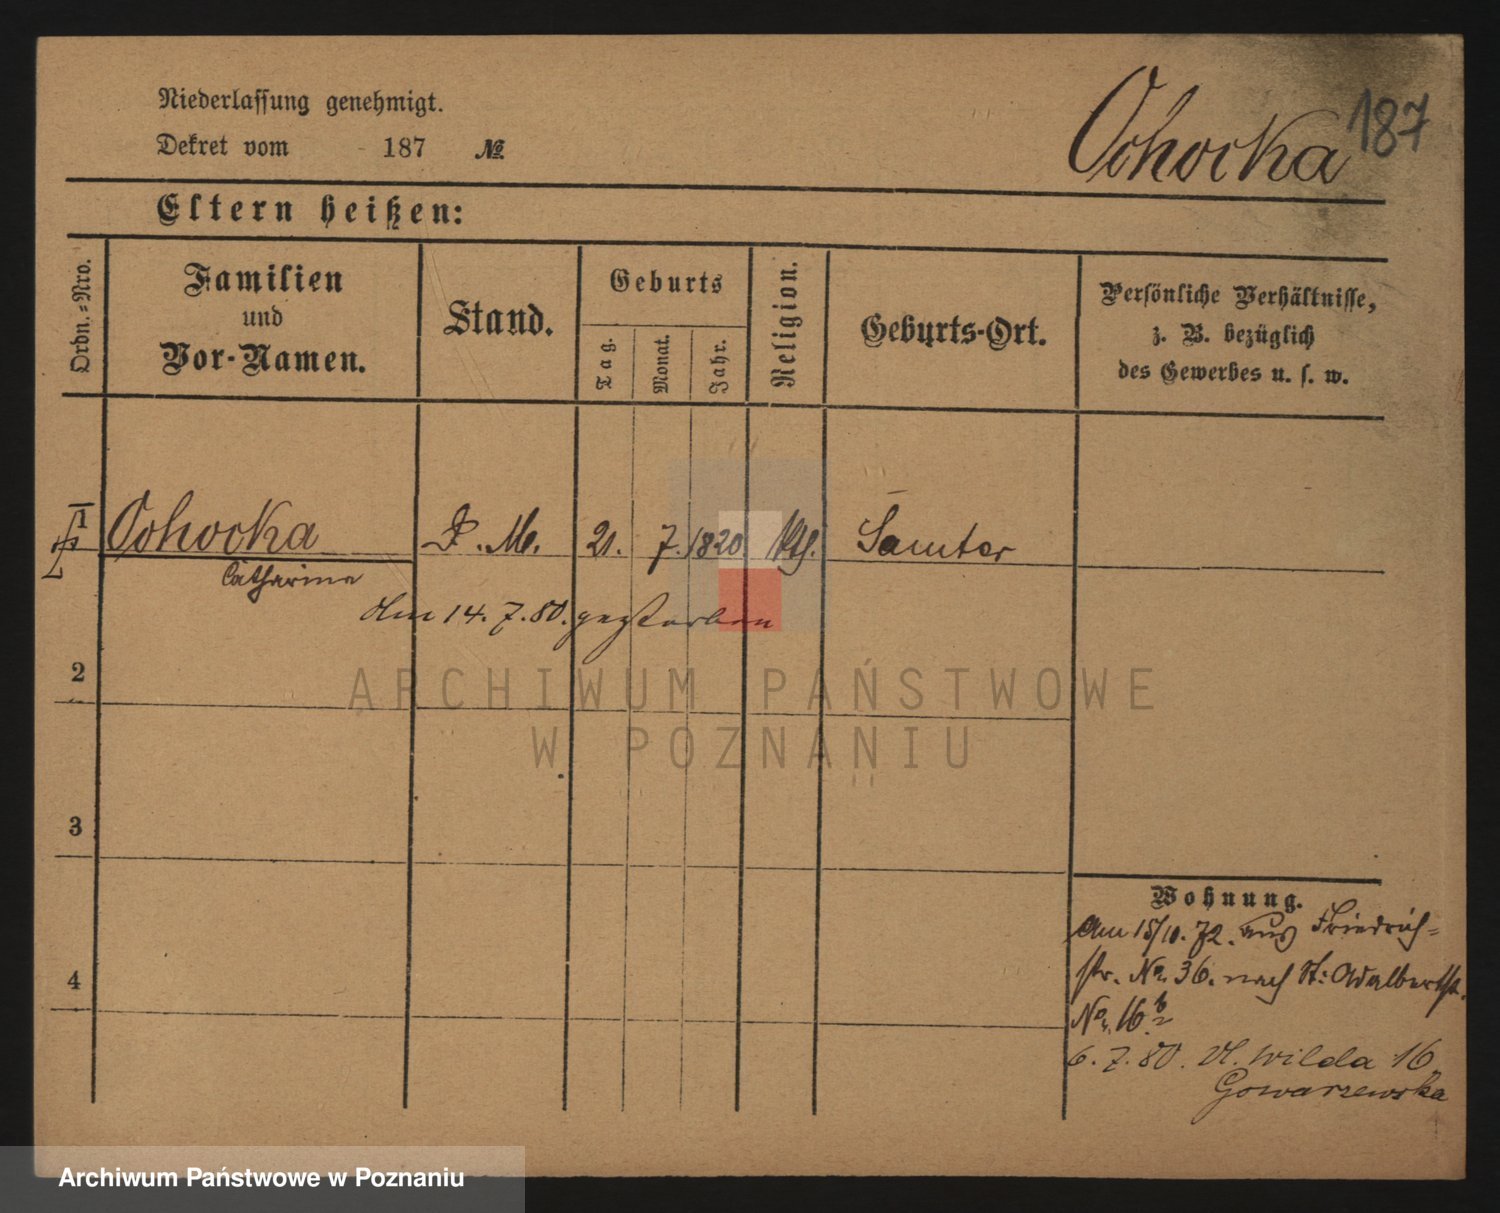 Niederlassung genehmigt.
Dekret vom 187 №
Ochocka 187
Eltern heißen:
Ordn.-Nro.
Familien
und
Vor-Namen.
Stand.
Geburts
Tag.
Monat.
Jahr.
Religion.
Geburts-Ort.
Persönliche Verhältnisse,
z. B. bezüglich
des Gewerbes u. s. w.
1 Ochocka D. M. 21. 7. 1820 kth. Samter
Catharina
Am 14. 7. 80. gestorben
2
3
4
Wohnung.
Am 15/10. 72. aus Friedrich-
str. No. 36. nach St: Adalbertstr.
No. 16b
6. 7. 80. Vl. Wilda 16
Gowarzewska
ARCHIWUM PAŃSTWOWE
W POZNANIU
Archiwum Państwowe w Poznaniu